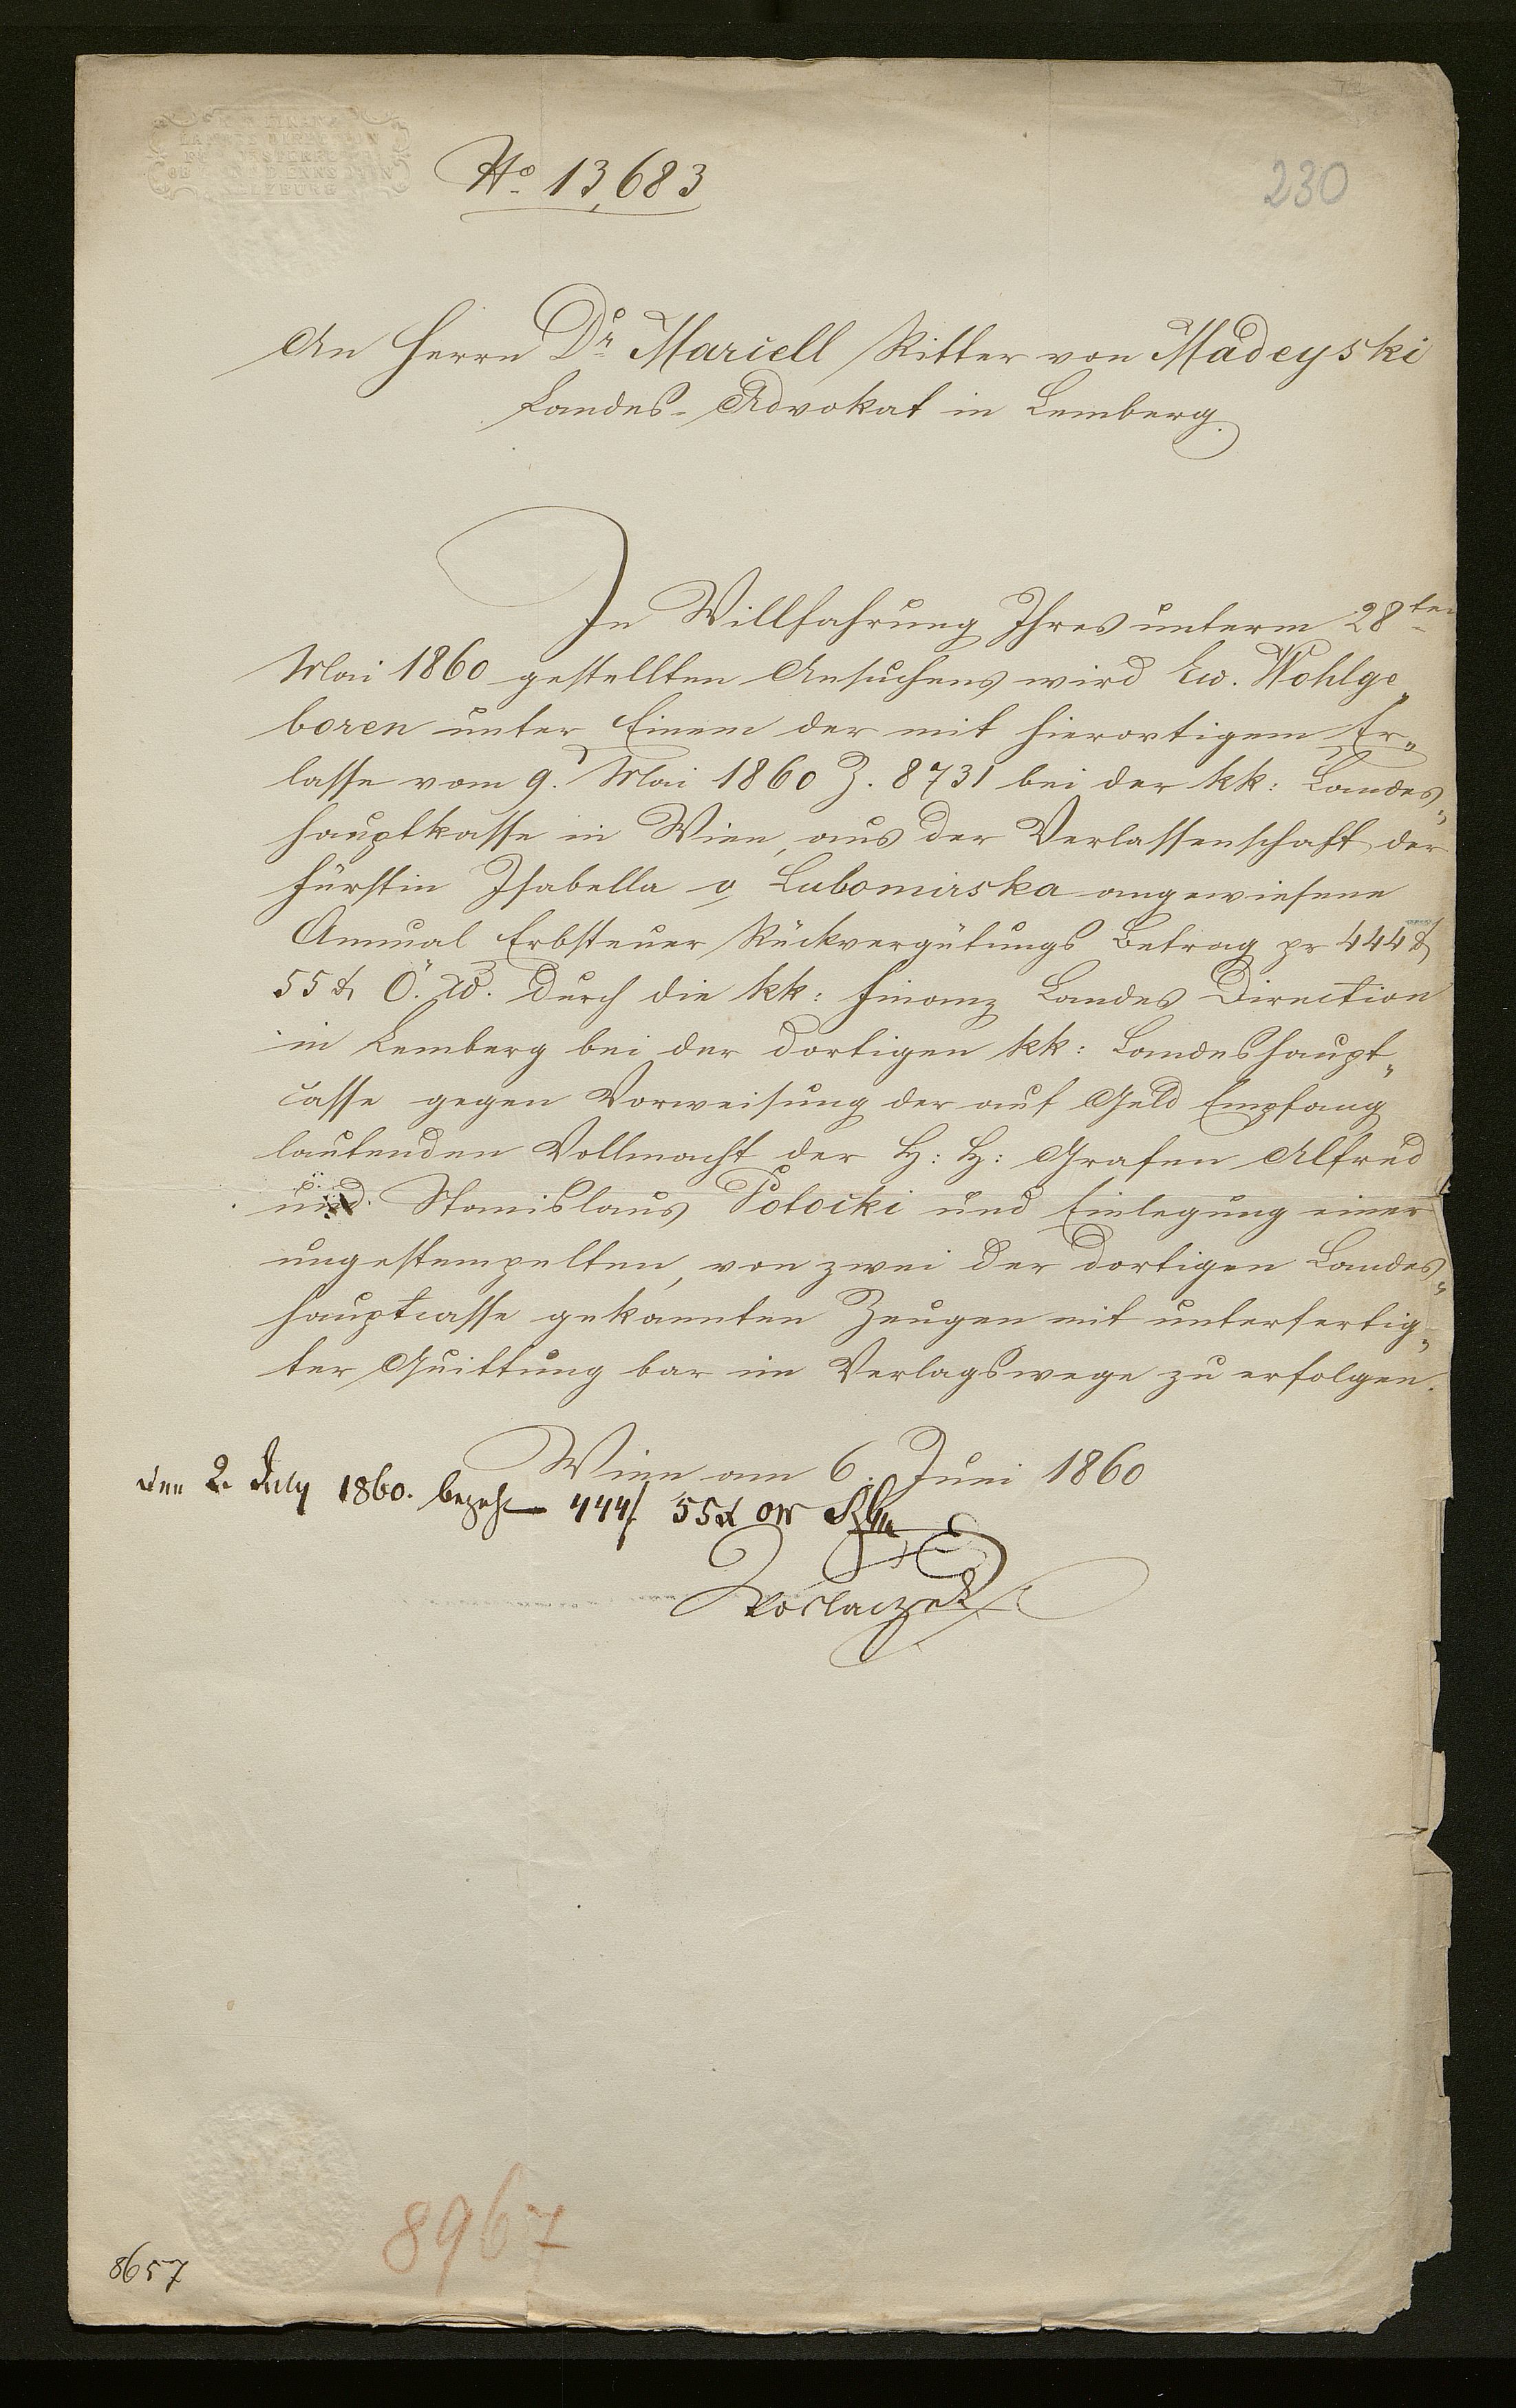 No 13,683
230
An Herrn Dr Marcell Ritter von Madeyski
Landes-Advokat in Lemberg.
In Willfahrung Ihres unterm 28ten
Mai 1860 gestellten Ansuchens wird Eu. Wohlge„
boren unter Einem der mit hierortigem Er„
lasse vom 9. Mai 1860 Z. 8731 bei der kk: Landes„
hauptkasse in Wien, aus der Verlassenschaft der
Fürstin Isabella v. Lubomirska angewiesene
Annual Erbsteuer Rückvergütungs Betrag pr 444 f
55 x Ö. W. durch die kk: Finanz Landes Direction
in Lemberg bei der dortigen kk: Landeshaupt„
casse gegen Vorweisung der auf Geld Empfang
lautenden Vollmacht der H: H: Grafen Alfred
und Stanislaus Potocki und Einlegung einer
ungestempelten, von zwei der dortigen Landes„
hauptcasse gekannten Zeugen mit unterfertig„
ter Quittung bar im Verlagswege zu erfolgen.
Wien am 6. Juni 1860
den 2. July 1860. bezahlt 444 f 55 x ow
8967
8657